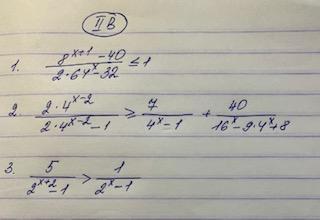 II B
1. (8^(x+1) - 40)/(2·64^x - 32) ≤ 1
2. (2·4^(x-2))/(2·4^(x-2) - 1) ≥ 7/(4^x - 1) + 40/(16^x - 9·4^x + 8)
3. 5/(2^(x+2) - 1) > 1/(2^x - 1)